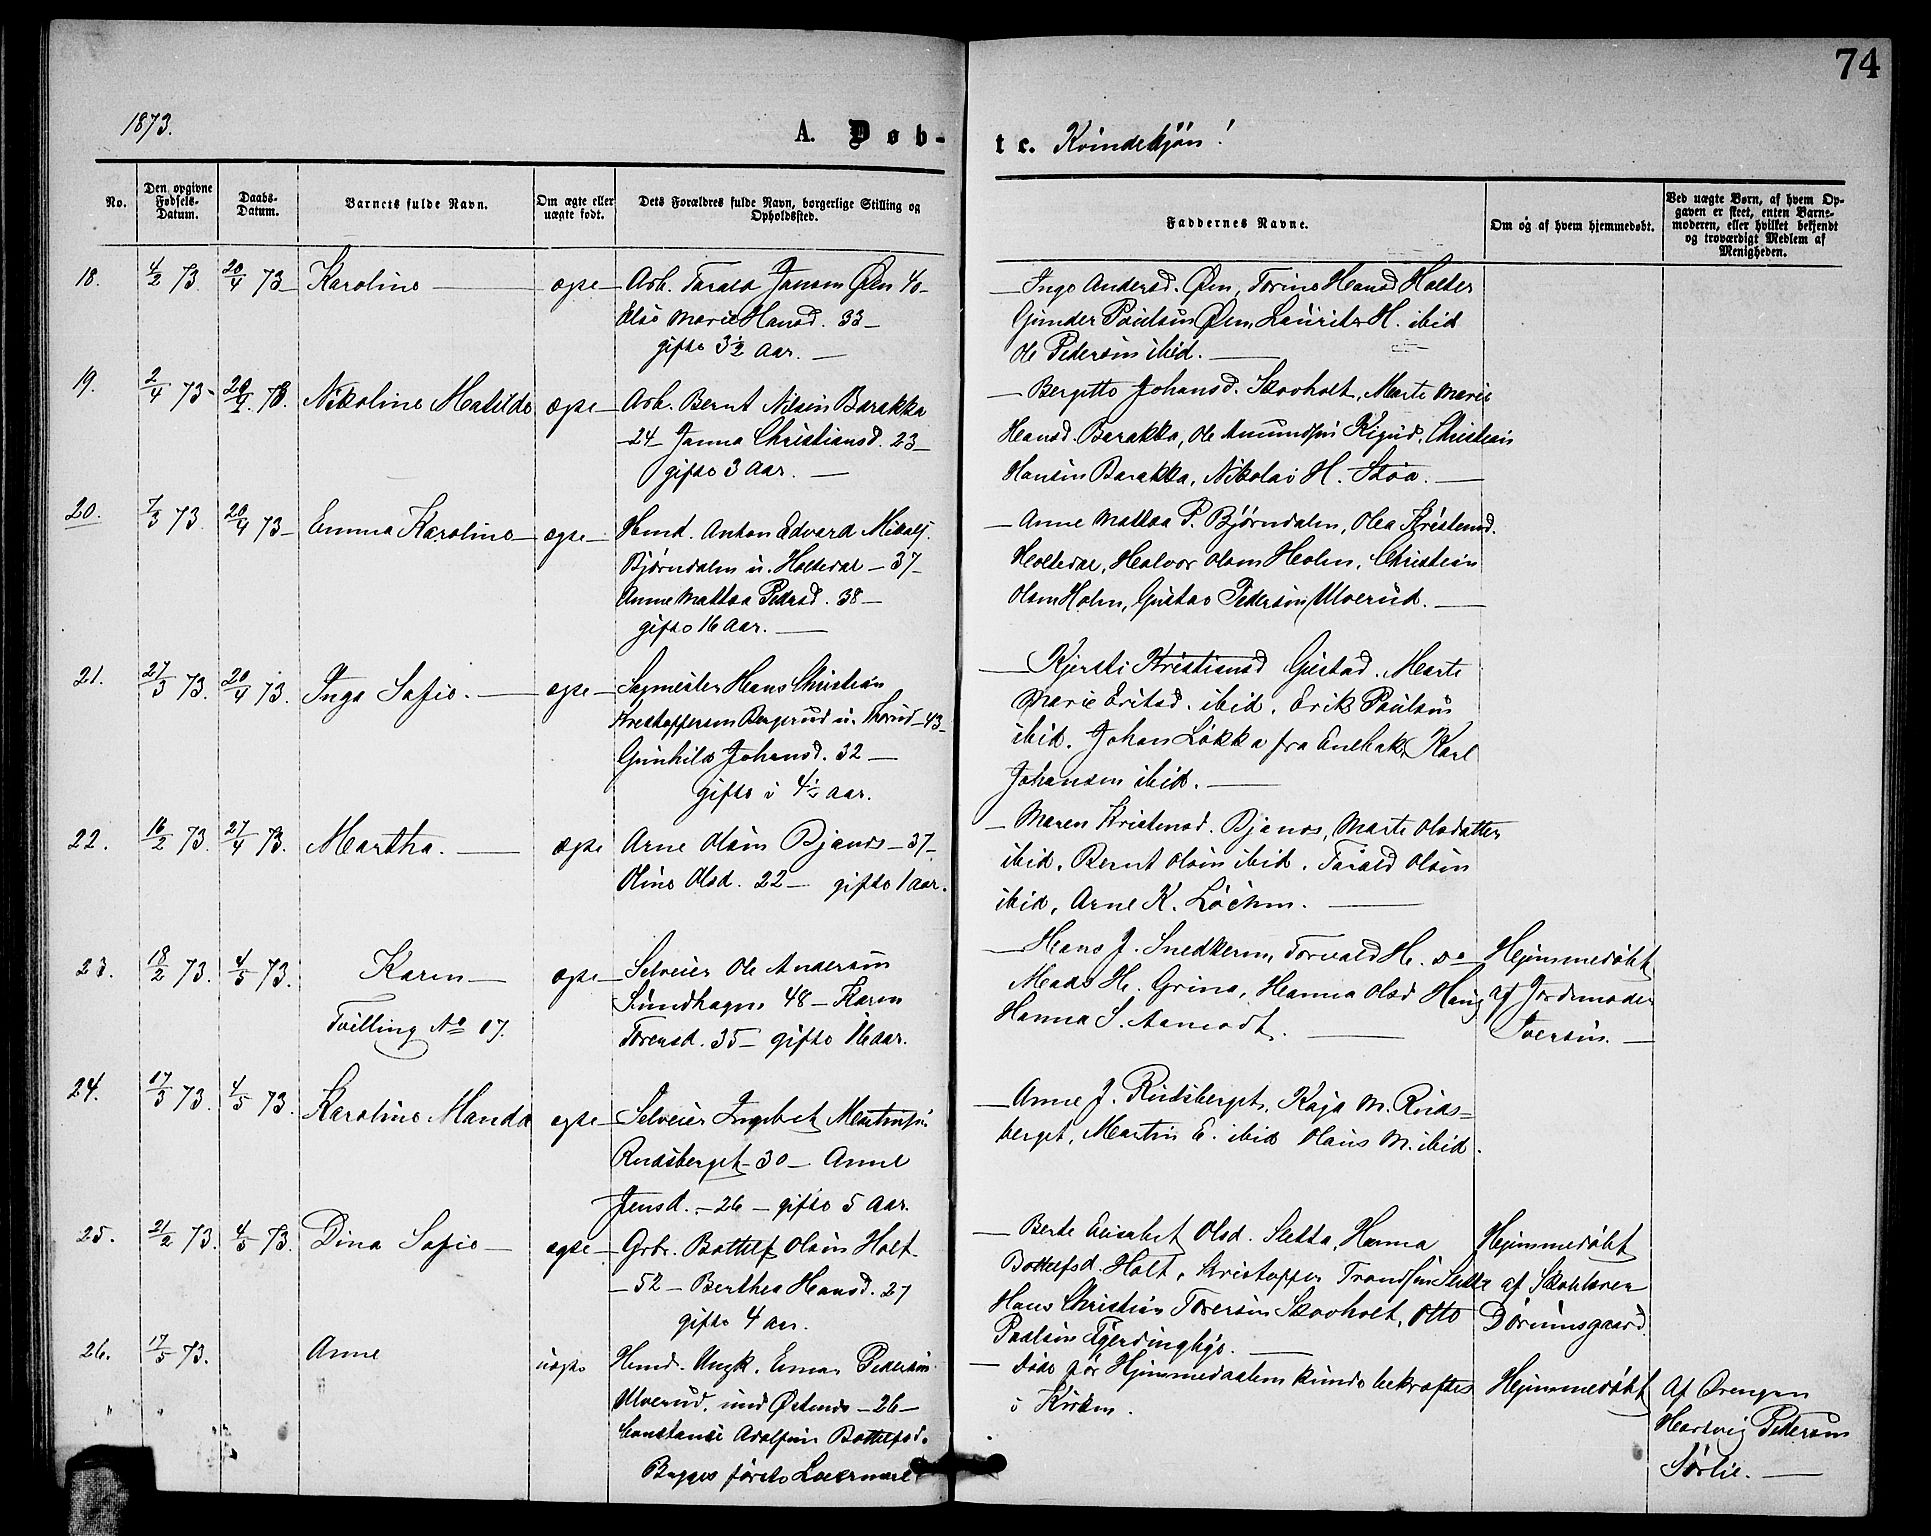 74
1873.
A. Døbte. Kvindekjøn!
No.
Den opgivne Fødsels-Datum.
Daabs-Datum.
Barnets fulde Navn.
Om ægte eller uægte født.
Dets Forældres fulde Navn, borgerlige Stilling og Opholdssted.
Faddernes Navne.
Om og af hvem hjemmedøbt.
Ved uægte Børn, af hvem Opgaven er skeet, enten Barnemoderen, eller hvilket bekjendt og troværdigt Medlem af Menigheden.
18. 4/2 73. 20/4 73 Karoline — ægte —
Arb. Tarald Jansen Øen 40
Else Marie Hansd. 33 —
gifte 3½ Aar. —
— Inge Andersd. Øen, Torine Hansd Holter
Gunder Paulsen Øen Lauritz H. ibid
Ole Pedersen ibid. —
19. 2/4 73 20/4 73. Nikoline Matilde ægte —
Arb. Bernt Nilsen Barakka
24 Janna Christiansd. 23 —
gifte 3 Aar. —
— Bergitte Johansd. Skovholt, Marte Marie
Hansd. Barakka, Ole Amundsen Christian
Hansen Barakka, Nikolai H. Støa. —
20. 7/3 73. 20/4 73 Emma Karoline — ægte —
Hmd. Anton Edvard Mikalj.
Bjørndalen u. Holtedal — 37 —
Anne Mattea Pedersd. 38 —
gifte 16 Aar. —
— Anne Mattea P. Bjørndalen, Olea Kristensd.
Holtedal, Halvor Olsen Holen, Christian
Olsen Holen, Gustav Pedersen Ulverud. —
21. 27/3 73. 20/4 73. Inga Sofie. — ægte —
Sagmester Hans Christian
Kristoffersen Bergerud u. 43 —
Gunhild Johansd. 32 —
gifte i 4½ Aar.
— Kjersti Kristiansd Gustad. Marte
Marie Eriksd. ibid. Erik Paulsen
ibid. Johan Løkka fra Enebak, Karl
Johansen ibid. —
22. 16/2 73. 27/4 73. Martha. — ægte
Arne Olsen Bjanes — 37 —
Oline Olsd. 22 — gifte 1 Aar.
— Maren Kristensd. Bjanes, Marte Olsdatter
ibid, Bernt Olsen ibid. Tarald Olsen
ibid, Arne K. Løchen. —
23. 18/2 73. 4/5 73. Karen — ægte —
Tvilling No 17.
Selveier Ole Andersen
Sundhagen 48 — Karen
Torensd. 35 — gifte 16 Aar.
— Hans J. Snedkeren, Torvald H. do
Mads H. Grina, Hanna Olsd Haug
Hanna S. Aamodt. —
Hjemmedøbt
af Jordmoder
Iversen. —
24. 17/3 73. 4/5 73. Karoline Manda ægte —
Selveier Ingebret Martinsen
Rudsberget 30 — Anne
Jensd. — 26 — gifte 5 Aar.
— Anne J. Rudsberget, Kaja M. Ruds-
berget, Martin E. ibid Olaus M. ibid.
25. 21/2 73. 4/5 73. Dina Sofie — ægte —
Grbr. Bottolf Olsen Holt
— 52 — Berthea Hansd. 27
gifte 4 Aar.
— Berte Elisabet Olsd. Sletta, Hanna
Bottolfsd. Holt, Kristoffer Trondsen Sletta
Hans Christian Toresen Skovholt, Otto
Paulsen Fjerdingbye. —
Hjemmedøbt
af Skolelærer
Dørumsgaard.
26. 17/5 73. Anne uægte
Hmd. Ungk. Einar Pedersen
Ulverud. und Østende — 26 —
Constanse Adolfine Bottolfsd.
Bagges første Leiermaal
— Døde før Hjemmedaaben kunde bekræftes
i Kirken.
Hjemmedøbt
Af Drengen
Hartvig Pedersen
Sørlie. —